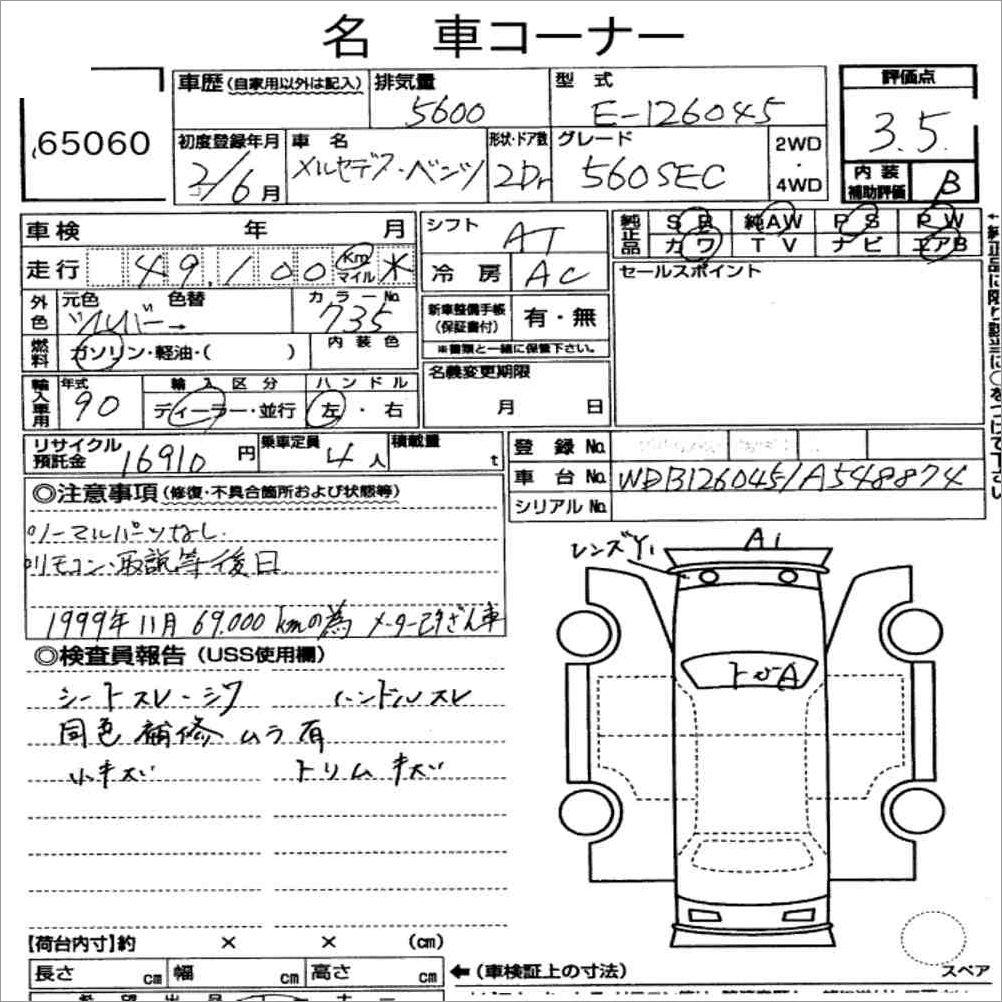 名 車コーナー
65060
車歴(自家用以外は記入)
排気量
5600
型 式
E-126045
評価点
3.5
初度登録年月
2/6月
車 名
メルセデス・ベンツ
形状・ドア数
2Dr
グレード
560SEC
2WD
・
4WD
内 装
補助評価
B
車検 年 月
走行 49,100 Km マイル *
シフト
AT
冷 房
AC
純正品
SR 純AW PS PW
カワ TV ナビ エアB
セールスポイント
外色
元色 色替
シルバー→
カラーNo.
735
燃料
ガソリン・軽油・( )
内 装 色
新車整備手帳
(保証書付)
有・無
※書類と一緒に保管下さい。
輸入車用
年式
90
輸 入 区 分
ディーラー・並行
ハ ン ド ル
左・右
名義変更期限
月 日
リサイクル
預託金
16910円
乗車定員
4人
積載量
t
登 録 No.
車 台 No.
WDB1260451A548874
シリアル No.
◎注意事項(修復・不具合箇所および状態等)
ノーマルパーツなし
リモコン・取説等後日
1999年11月 69.000kmの為 メーター改ざん車
◎検査員報告(USS使用欄)
シートスレ・シワ ハンドルスレ
同色補修ムラ有
小キズ トリムキズ
レンズY1
A1
トビA
【荷台内寸】約 × × (cm)
長さ cm 幅 cm 高さ cm
←(車検証上の寸法)
スペア